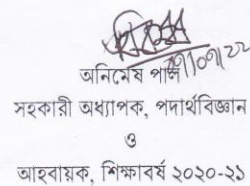 অনিমেষ পাল
সহকারী অধ্যাপক, পদার্থবিজ্ঞান
ও
আহবায়ক, শিক্ষাবর্ষ ২০২০-২১